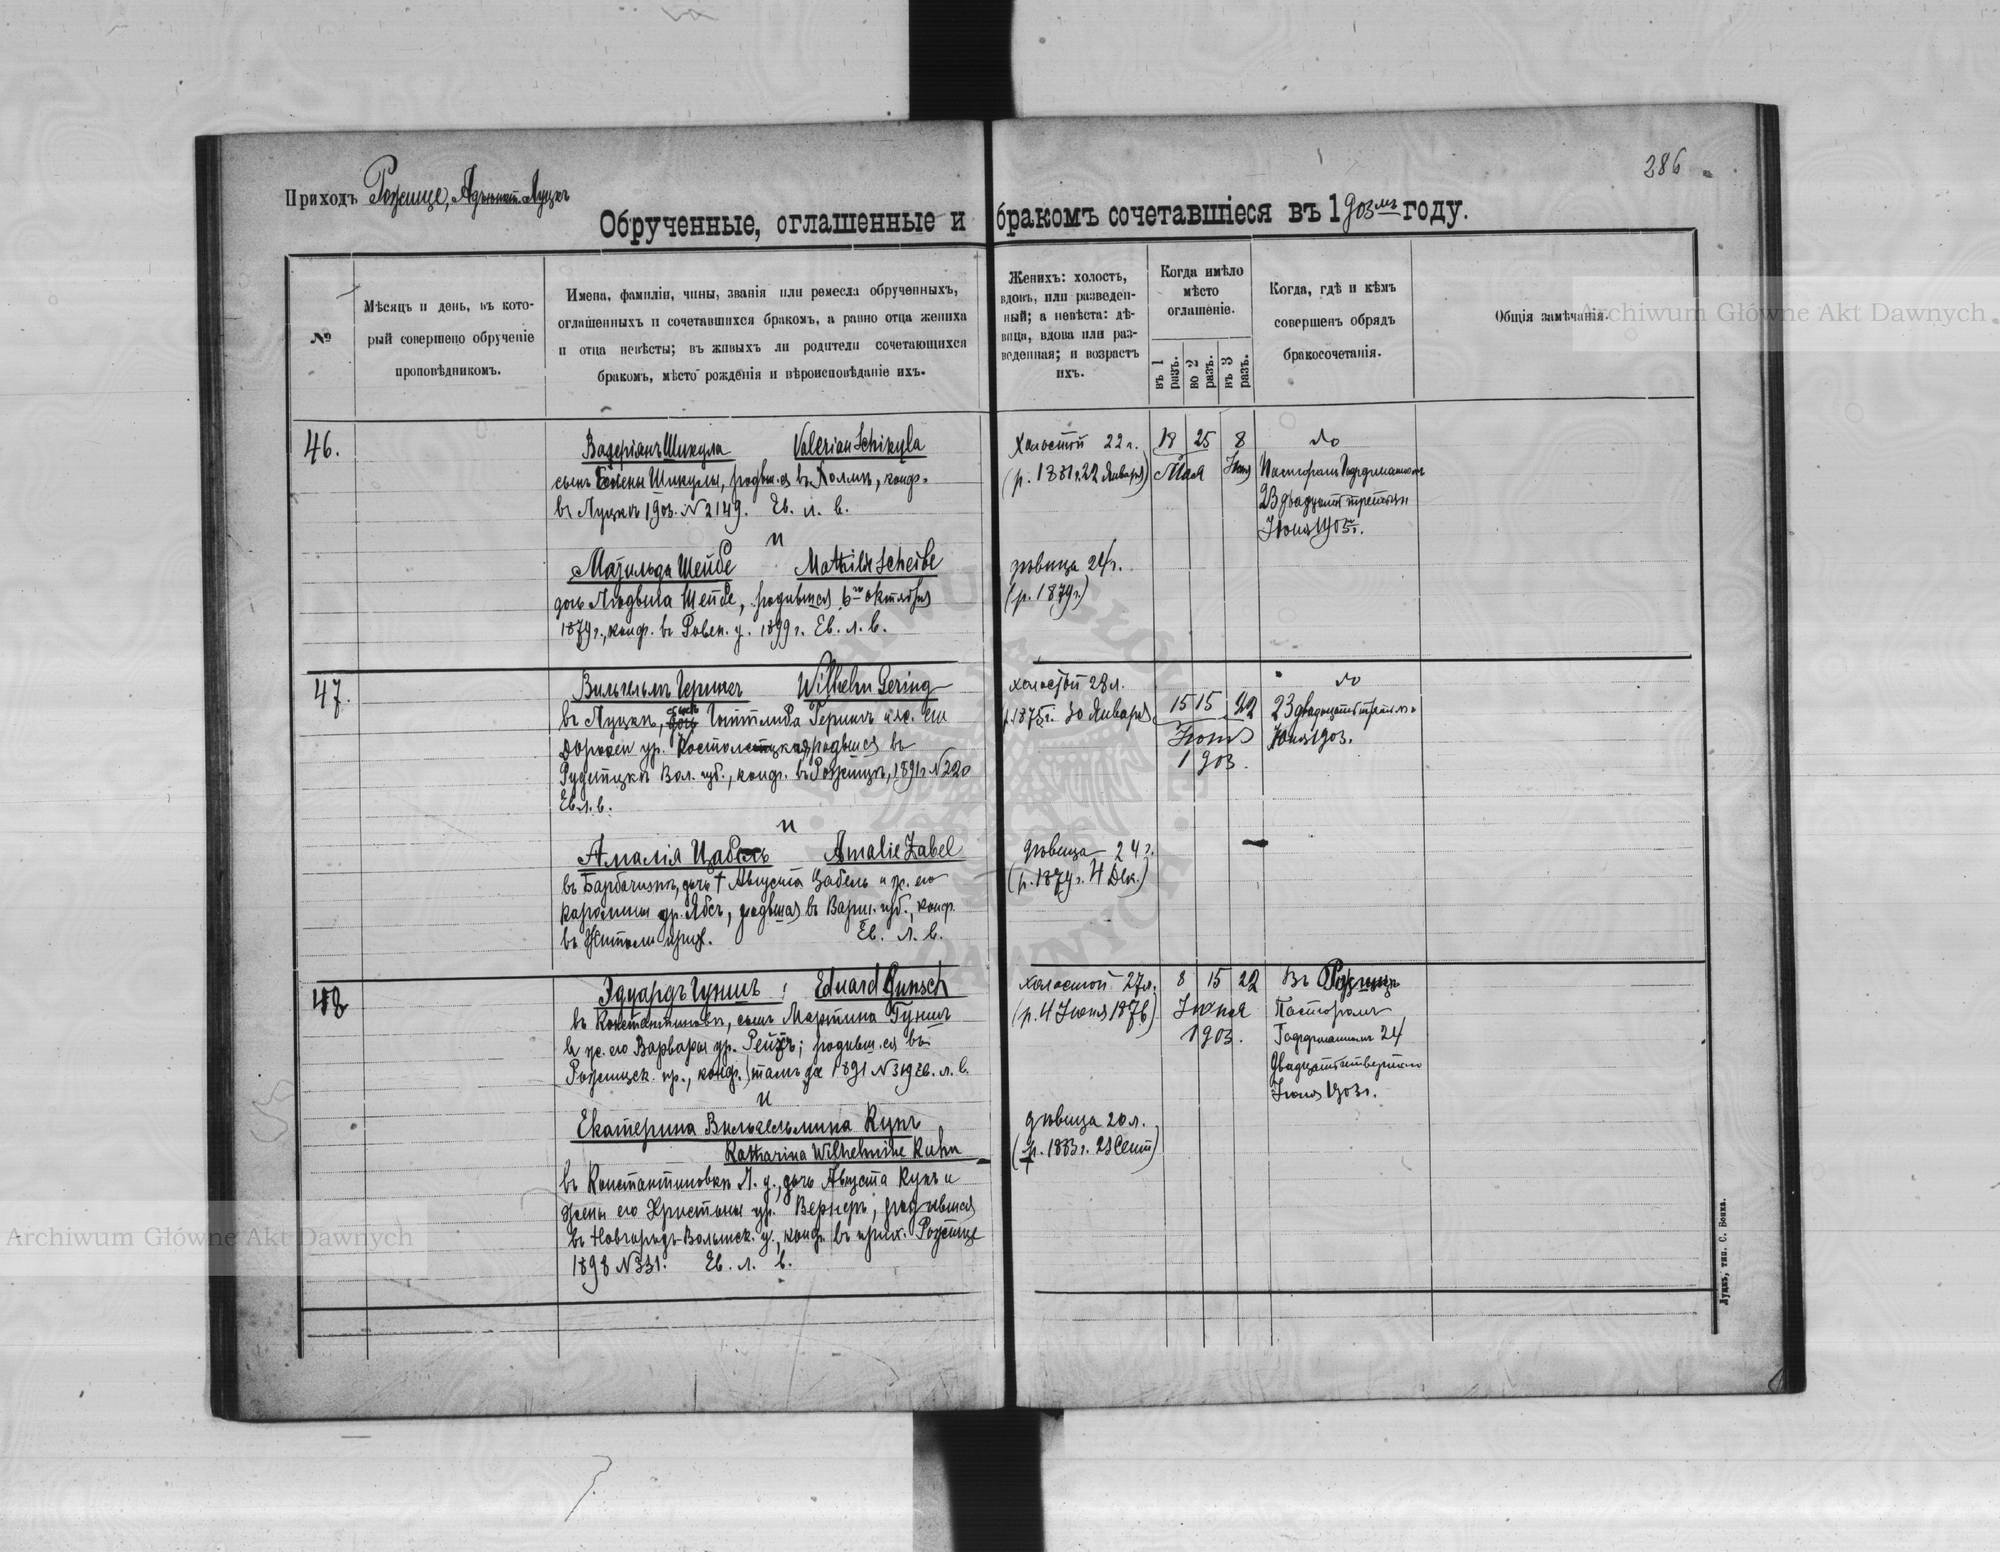 286
Приходъ Рожище, Адъюнкт. Луцкъ
Обрученные, оглашенные и бракомъ сочетавшіеся въ 1903 году.
№
Мѣсяцъ и день, въ кото-
рый совершено обрученіе
проповѣдникомъ.
Имена, фамиліи, чины, званія или ремесла обрученныхъ,
оглашенныхъ и сочетавшихся бракомъ, а равно отца жениха
и отца невѣсты; въ живыхъ ли родители сочетающихся
бракомъ, мѣсто рожденія и вѣроисповѣданіе ихъ.
Женихъ: холостъ,
вдовъ, или разведен-
ный; а невѣста: дѣ-
вица, вдова или раз-
веденная; и возрастъ
ихъ.
Когда имѣло
мѣсто
оглашеніе.
въ 1 разъ.
во 2 разъ.
въ 3 разъ.
Когда, гдѣ и кѣмъ
совершенъ обрядъ
бракосочетанія.
Общія замѣчанія.
46.
Валеріанъ Шикула Valerian Schikula
сынъ Елены Шикулы, родивш.ся въ Холмѣ, конф.
въ Луцкѣ 1903. № 2149. Ев. л. в.
и
Матильда Шейбе Mathilde Scheibe
дочь Людвига Шейбе, родившаяся 6го октября
1879 г., конф. въ Ровен. у. 1899 г. Ев. л. в.
Холостой 22 г.
(р. 1881 г. 22 Января)
18 25 8
Мая Іюня
Пасторомъ
23 двадцать третьяго
Іюня 1903 г.
дѣвица 24 г.
(р. 1879 г.)
47.
Вильгельмъ Герингъ Wilhelm Gering
въ Луцкѣ, сынъ Готтлиба Герингъ и ж. его
ур. родивш.ся въ
Вол. губ., конф. въ Рожищѣ, 1891 г. № 220
Ев. л. в.
и
Амалія Цабель Amalie Zabel
въ дочь † Августа Цабель и ж. его
Каролины ур. родивш.ая въ Варш. губ., конф.
въ прих. Ев. л. в.
холостой 28 л.
р. 1875 г. 30 Января
15 15 22
Іюня
1903.
23 двадцать третьяго
Іюня 1903.
дѣвица 24 г.
(р. 1879 г. 4 Дек.)
48
Эдуардъ Гуншъ Eduard Gunsch
въ Константиновкѣ, сынъ Мартина Гуншъ
и ж. его Варвары ур. родивш.ся въ
Рожищск. пр., конф. тамъ же 1891 № 319 Ев. л. в.
и
Екатерина Вильгельмина Кунъ
Katharina Wilhelmine Kuhn
въ Константиновкѣ Л. у., дочь Августа Кунъ и
жены его Христины ур. Вернеръ, родившаяся
въ Новгородъ-Волынск. у., конф. въ прих. Рожище
1898 № 331. Ев. л. в.
холостой 27 л.
(р. 4 Іюня 1876)
8 15 22
Іюня
1903.
Въ Рожищѣ
Пасторомъ
24
двадцать четвертаго
Іюня 1903 г.
дѣвица 20 л.
(р. 1883 г. 23 Сент)
Луцкъ, тип. С. Бонка.
Archiwum Główne Akt Dawnych
Archiwum Główne Akt Dawnych